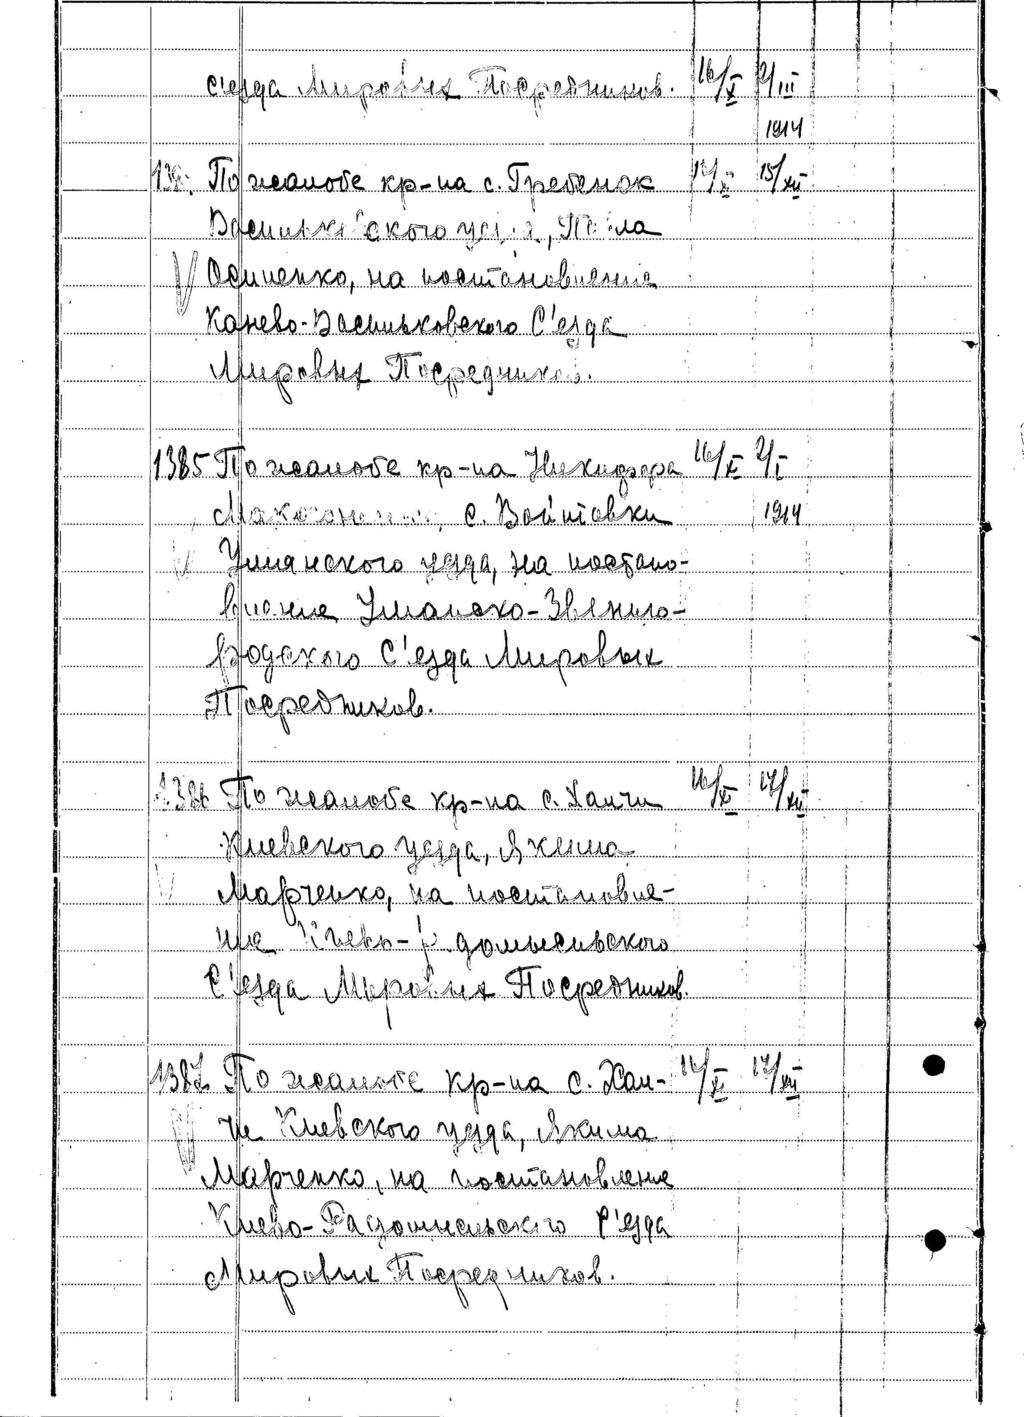 с'езда Мировых Посредников. 16/X 2/III
1914
138 По жалобе кр-на с. Гребенок 15/XII
Васильковского уезда,
Осипенко, на постановление
Канево-Васильковского С'езда
Мировых Посредников.
1385 По жалобе кр-на Никифора 16/X 2/I
Макогоненко, с. Войтовки 1914
Уманского уезда, на постано-
вление Уманско-Звениго-
родского С'езда Мировых
Посредников.
1386 По жалобе кр-на с. Ханчи 16/X 17/XII
Киевского уезда, Якима
Марченко, на постановле-
ние Киево-Радомысльского
С'езда Мировых Посредников.
1387 По жалобе кр-на с. Хан- 17/XII
чи Киевского уезда, Якима
Марченко, на постановление
Киево-Радомысльского С'езда
Мировых Посредников.